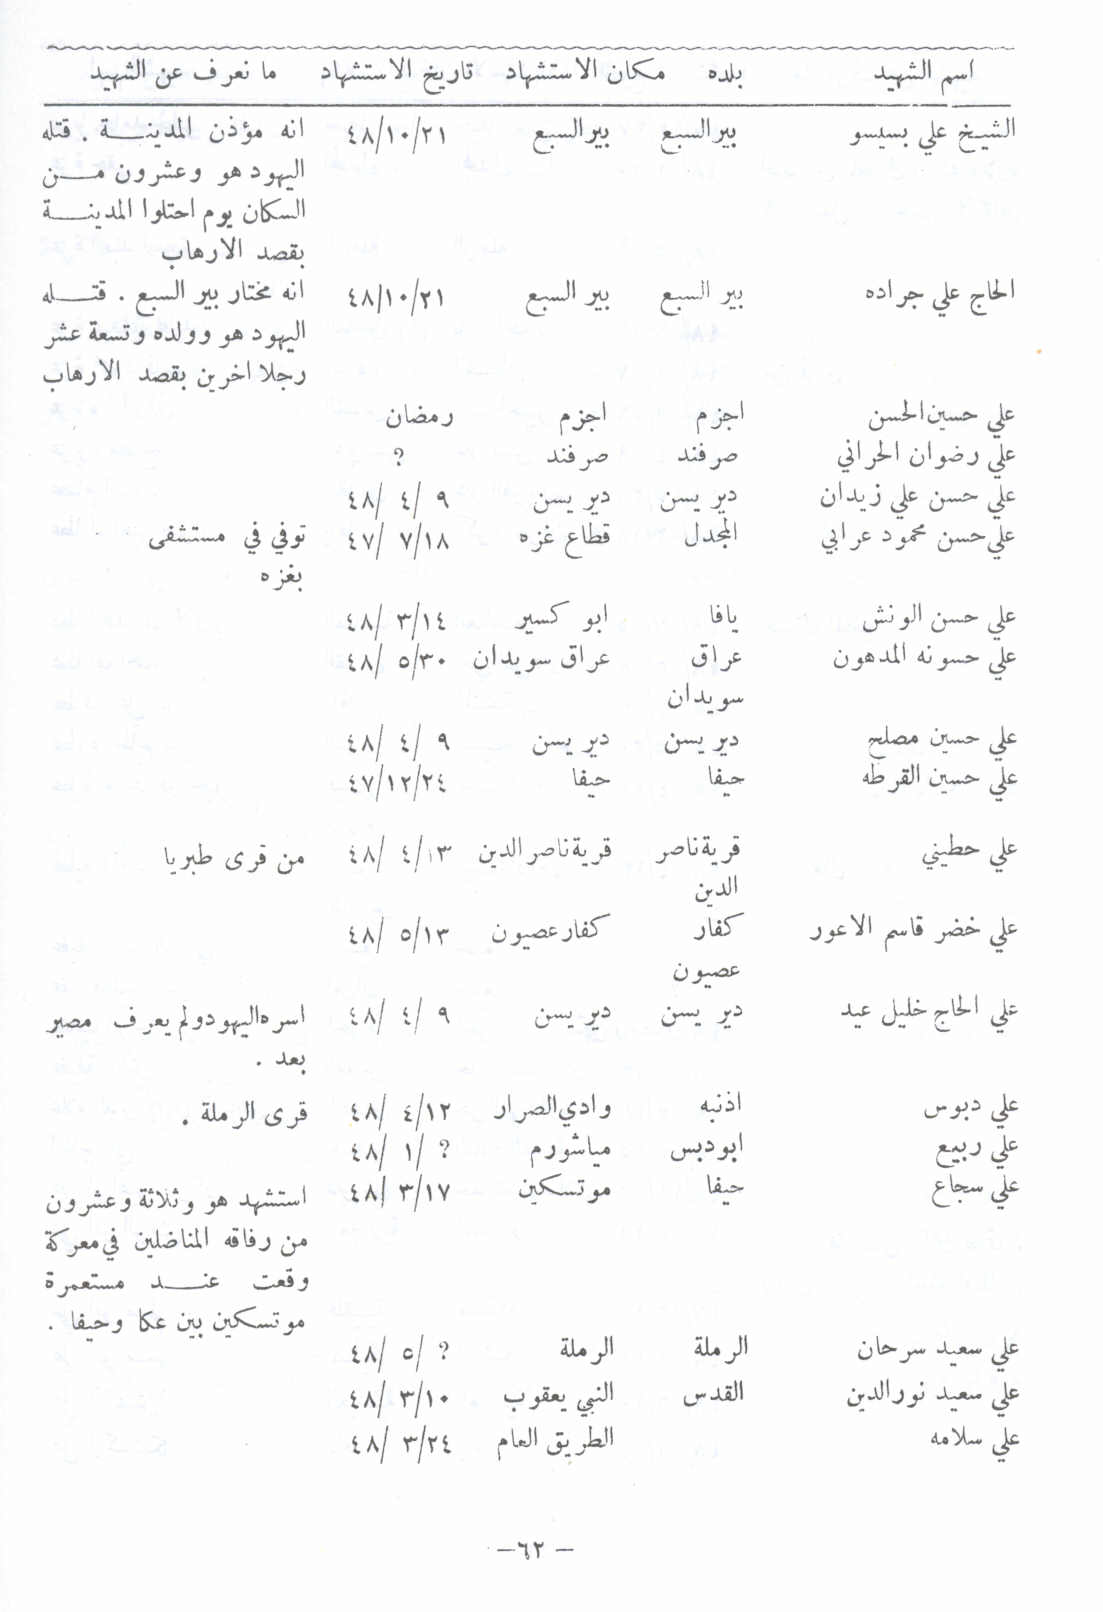 اسم الشهيد بلده مكان الاستشهاد تاريخ الاستشهاد ما نعرف عن الشهيد
الشيخ علي بسيسو بير السبع بير السبع ٤٨/١٠/٢١ انه مؤذن المدينة . قتله
اليهود هو وعشرون من
السكان يوم احتلوا المدينة
بقصد الارهاب
الحاج علي جراده بير السبع بير السبع ٤٨/١٠/٢١ انه مختار بير السبع . قتله
اليهود هو وولده وتسعة عشر
رجلا اخرين بقصد الارهاب
علي حسين الحسن اجزم اجزم رمضان
علي رضوان الحراني صرفند صرفند ؟
علي حسن علي زيدان دير يسن دير يسن ٤٨/ ٤/ ٩
علي حسن محمود عرابي المجدل قطاع غزه ٤٧/ ٧/١٨ توفي في مستشفى
بغزه
علي حسن الونش يافا ابو كسير ٤٨/ ٣/١٤
علي حسونه المدهون عراق عراق سويدان ٤٨/ ٥/٣٠
سويدان
علي حسين مصلح دير يسن دير يسن ٤٨/ ٤/ ٩
علي حسين القرطه حيفا حيفا ٤٧/١٢/٢٤
علي حطيني قرية ناصر قرية ناصر الدين ٤٨/ ٤/١٣ من قرى طبريا
الدين
علي خضر قاسم الاعور كفار كفار عصيون ٤٨/ ٥/١٣
عصيون
علي الحاج خليل عيد دير يسن دير يسن ٤٨/ ٤/ ٩ اسره اليهود ولم يعرف مصير
بعد .
علي دبوس اذنبه وادي الصرار ٤٨/ ٤/١٢ قرى الرملة .
علي ربيع ابو دبس مياشورم ٤٨/ ١/ ؟
علي سجاع حيفا موتسكين ٤٨/ ٣/١٧ استشهد هو وثلاثة وعشرون
من رفاقه المناضلين في معركة
وقعت عند مستعمرة
موتسكين بين عكا وحيفا .
علي سعيد سرحان الرملة الرملة ٤٨/ ٥/ ؟
علي سعيد نور الدين القدس النبي يعقوب ٤٨/ ٣/١٠
علي سلامه الطريق العام ٤٨/ ٣/٢٤
— ٦٢ —